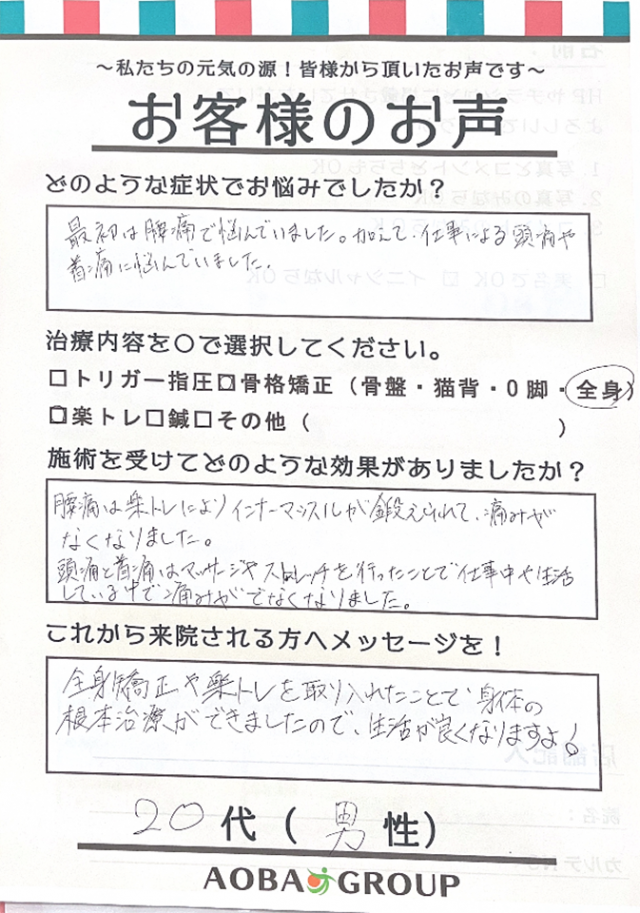 ～私たちの元気の源！皆様から頂いたお声です～
お客様のお声
どのような症状でお悩みでしたか？
最初は腰痛で悩んでいました。加えて、仕事による頭痛や
首痛に悩んでいました。
治療内容を○で選択してください。
□トリガー指圧□骨格矯正（骨盤・猫背・O脚・全身）
□楽トレ□鍼□その他（　　　　　　　　　　）
施術を受けてどのような効果がありましたか？
腰痛は楽トレによりインナーマッスルが鍛えられて、痛みが
なくなりました。
頭痛と首痛はマッサージやストレッチを行ったことで仕事中や生活
している中で痛みがでなくなりました。
これから来院される方へメッセージを！
全身矯正や楽トレを取り入れたことで、身体の
根本治療ができましたので、生活が良くなりますよ！
20代（男性）
AOBA GROUP